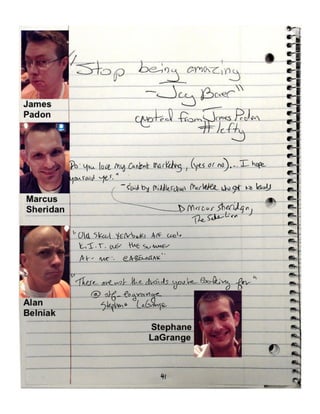 "Stop being amazing
- Jay Baer"
quoted from James Padon
#lefty
James
Padon
Do you love my content marketing, (yes or no)... I hope
you said yes."
- Said by middle man marketer who got no leads
Marcus Sheridan,
The Sales Lion
Marcus
Sheridan
"Old Skool yearbooks are cool.
K.I.T. over the summer
At- me- @ABELNIAK"
"These are not the droids you're looking for"
@stf_lagrange
Stephane LaGrange
Alan
Belniak
Stephane
LaGrange
41